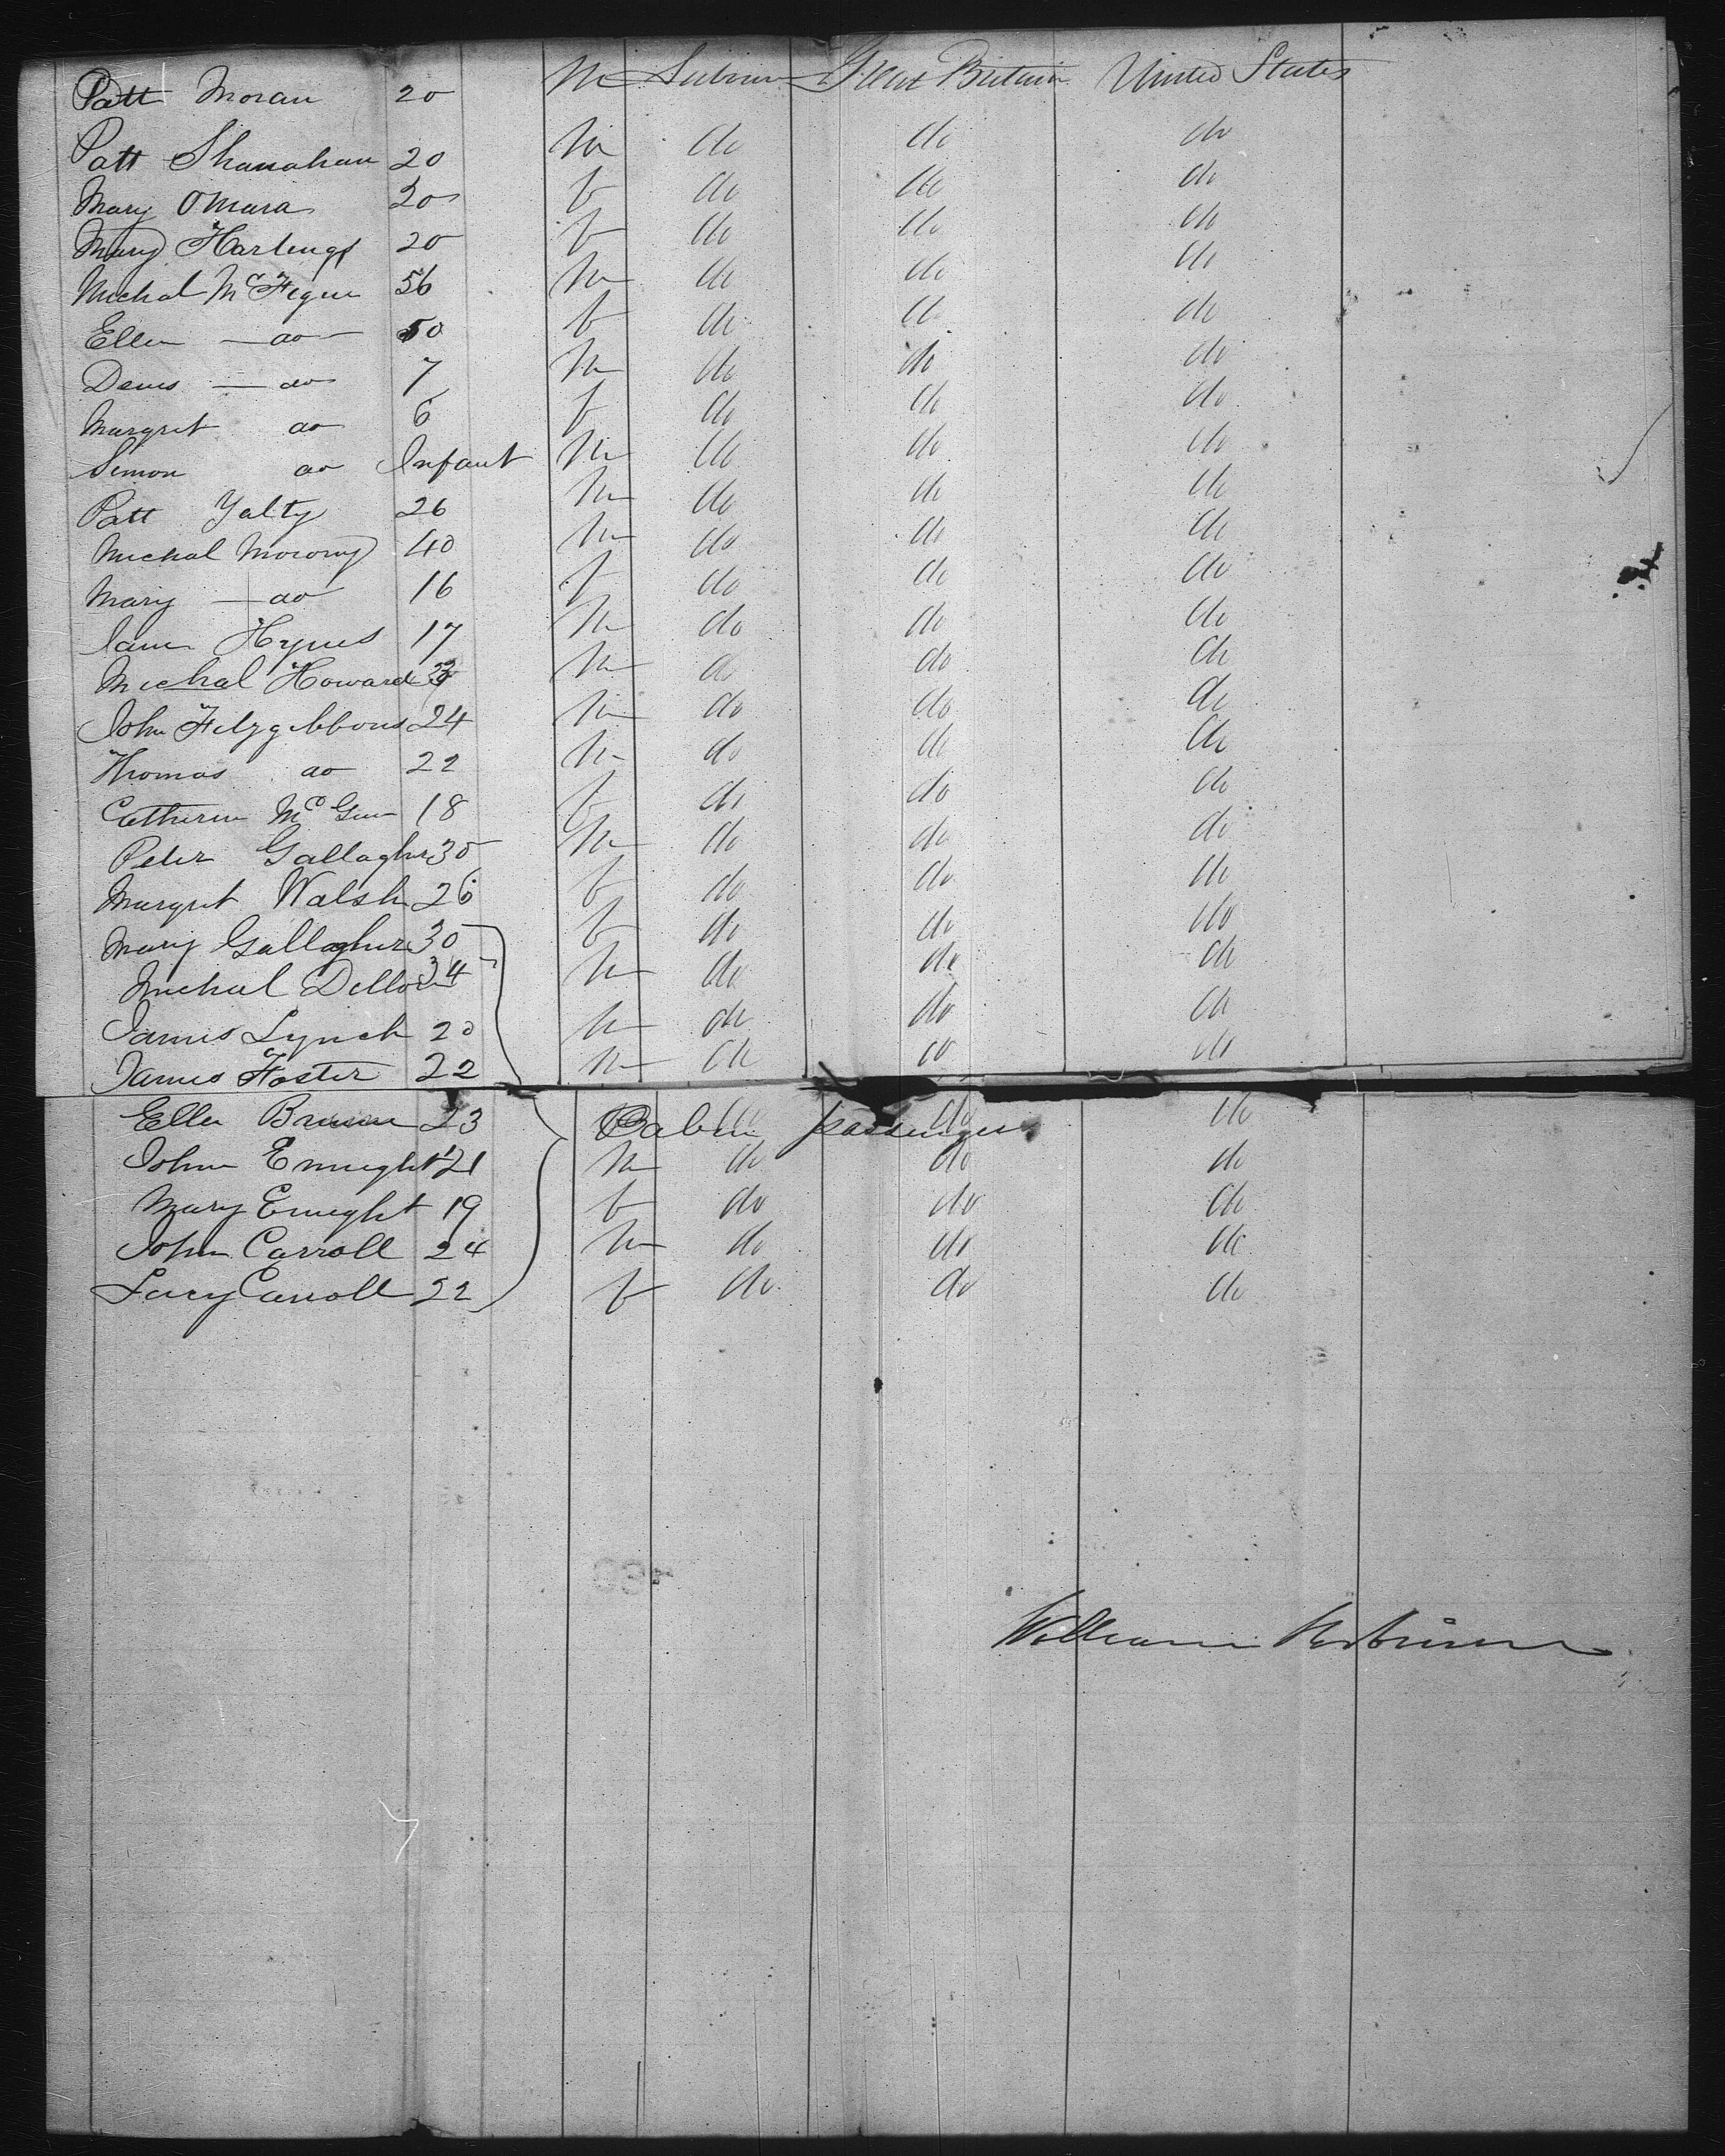 Patt Moran 20 M Great Britain United States
Patt Shanahan 20 M do do do
Mary OMara 20 f do do do
Mary Hartings 20 f do do do
Michal Mc 56 M do do do
Ellen do 50 f do do do
Denis do 7 M do do do
Margret do 6 f do do do
Simon do Infant M do do do
Patt 26 M do do do
Michal Morony 40 M do do do
Mary do 16 f do do do
James Hynes 17 M do do do
Michal Howard M do do do
John Fitzgibbons 24 M do do do
Thomas do 22 M do do do
Catherin 18 f do do do
Peter Gallagher 30 M do do do
Margret Walsh 26 f do do do
Mary Gallagher 30 f do do do
Michal Dillon 24 M do do do
James Lynch 20 M do do do
James Foster 22 M do do do
Ellen 23 Cabin passengers do do
John Enright 21 M do do do
Mary Enright 19 f do do do
John Carroll 24 M do do do
Lucy Carroll 22 f do do do
William Robinson